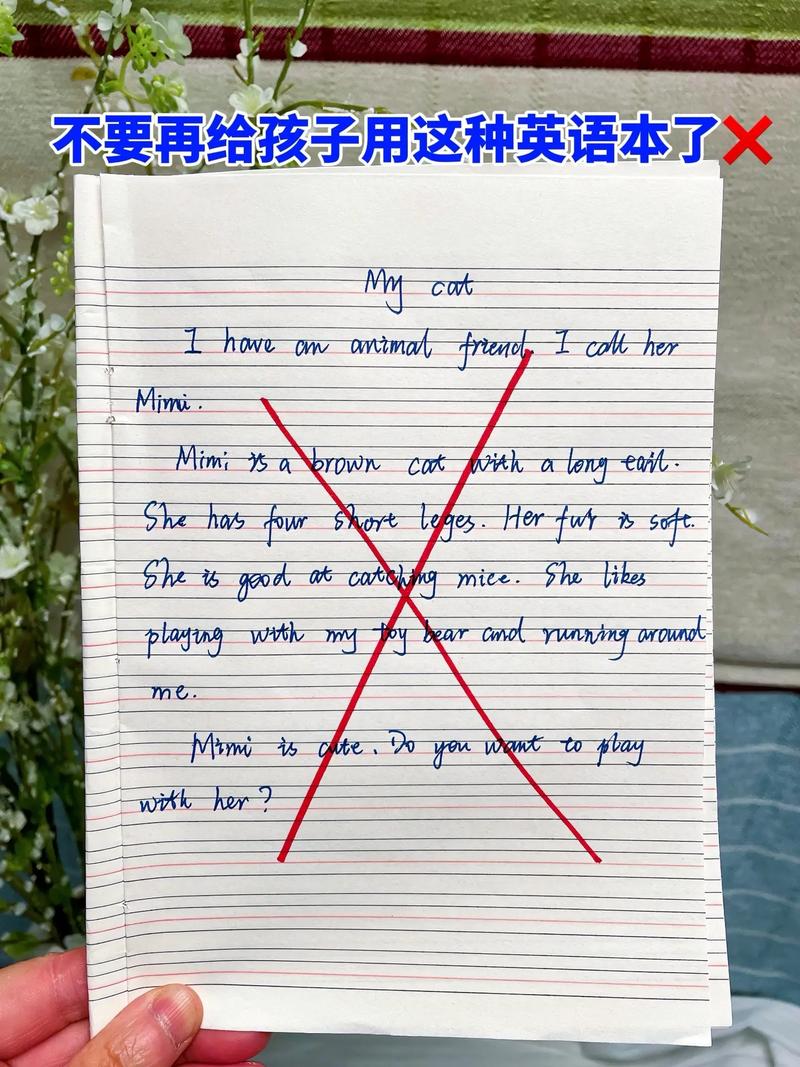 不要再给孩子用这种英语本了❌
My cat
I have an animal friend. I call her
Mimi.
Mimi is a brown cat with a long tail.
She has four short leges. Her fur is soft.
She is good at catching mice. She likes
playing with my toy bear and running around
me.
Mimi is cute. Do you want to play
with her?